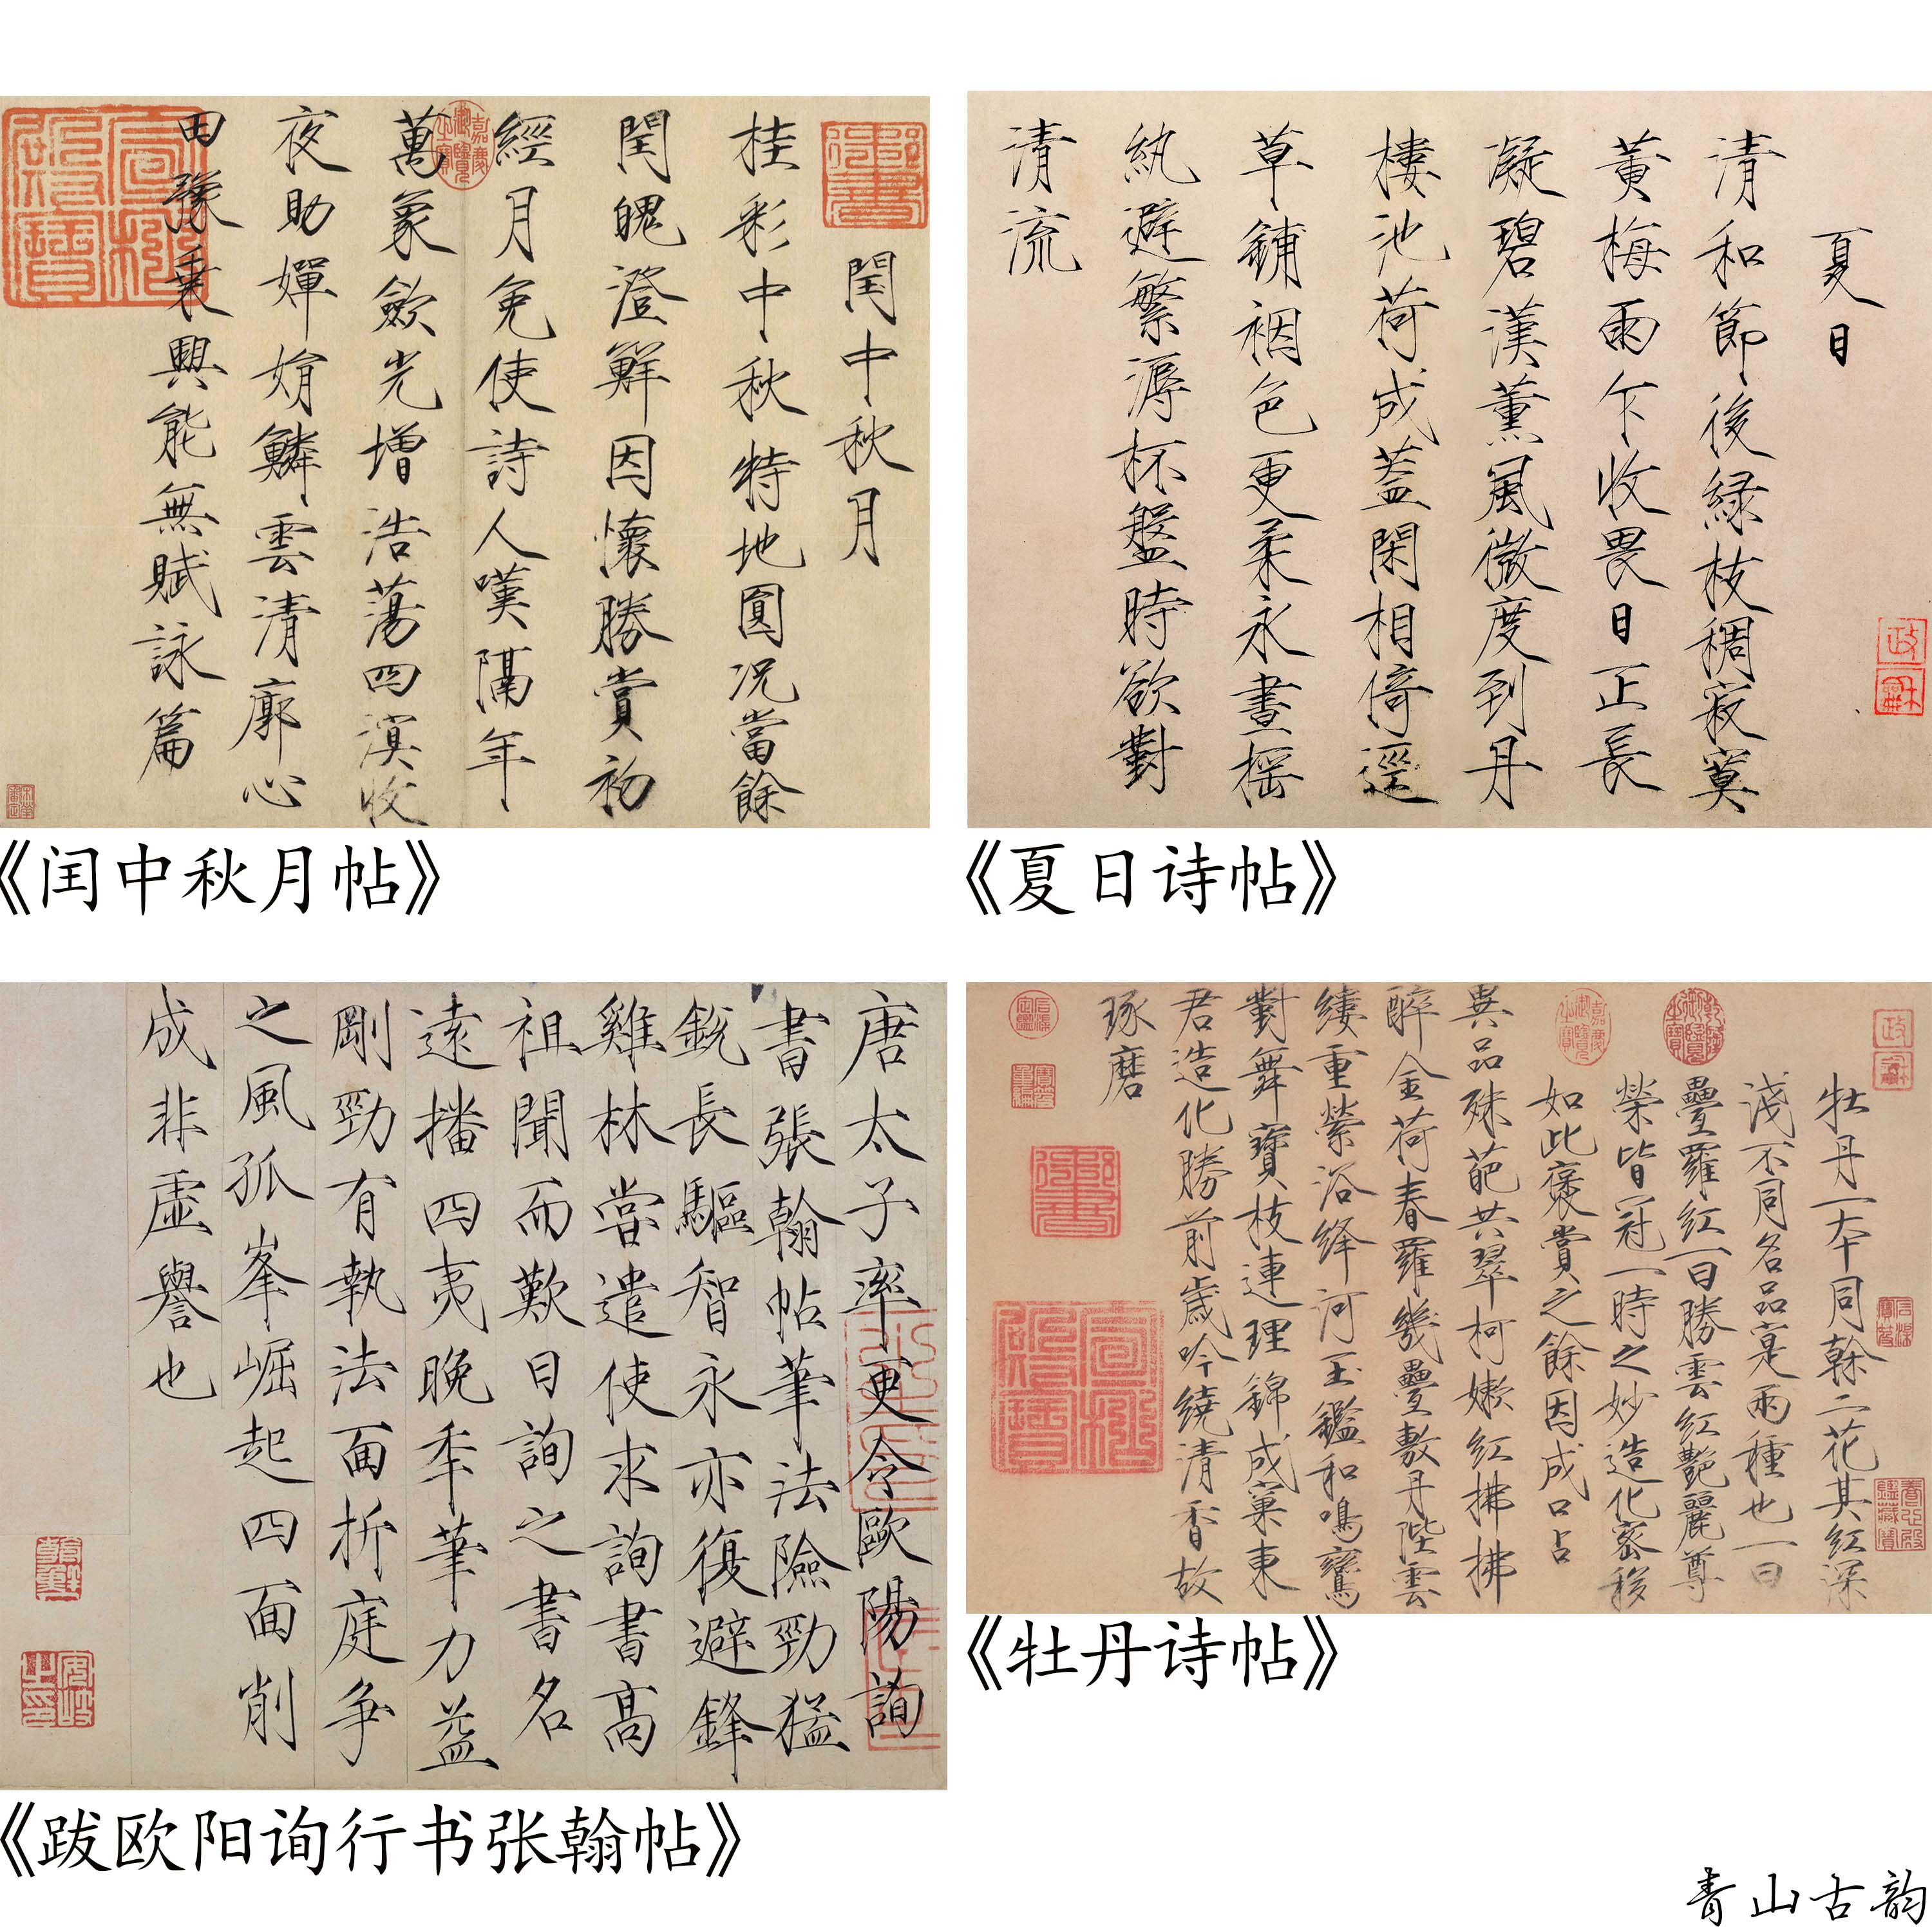 閏中秋月
桂彩中秋特地圓况當餘
閏魄澄鮮因懷勝賞初
經月免使詩人嘆隔年
萬象斂光增浩蕩四溟收
夜助嬋娟鱗雲清廓心
田豫乗興能無賦詠篇
《闰中秋月帖》
夏日
清和節後緑枝稠寂寞
黄梅雨乍收畏日正長
凝碧漢薰風微度到丹
樓池荷成蓋閑相倚逕
草鋪裀色更柔永晝揺
紈避繁溽杯盤時欲對
清流
《夏日诗帖》
唐太子率更令歐陽詢
書張翰帖筆法險勁猛
鋭長驅智永亦復避鋒
雞林嘗遣使求詢書高
祖聞而歎曰詢之書名
遠播四夷晩年筆力益
剛勁有執法面折庭争
之風孤峯崛起四面削
成非虚譽也
《跋欧阳询行书张翰帖》
牡丹一本同榦二花其紅深
淺不同名品寔兩種也一曰
疊羅紅一曰勝雲紅艶麗尊
榮皆冠一時之妙造化密移
如此褒賞之餘因成口占
異品殊葩共翠柯嫩紅拂拂
醉金荷春羅幾疊敷丹陛雲
縷重縈浴絳河玉鑑和鳴鸞
對舞寶枝連理錦成窠東
君造化勝前歲吟繞清香故
琢磨
《牡丹诗帖》
青山古韵